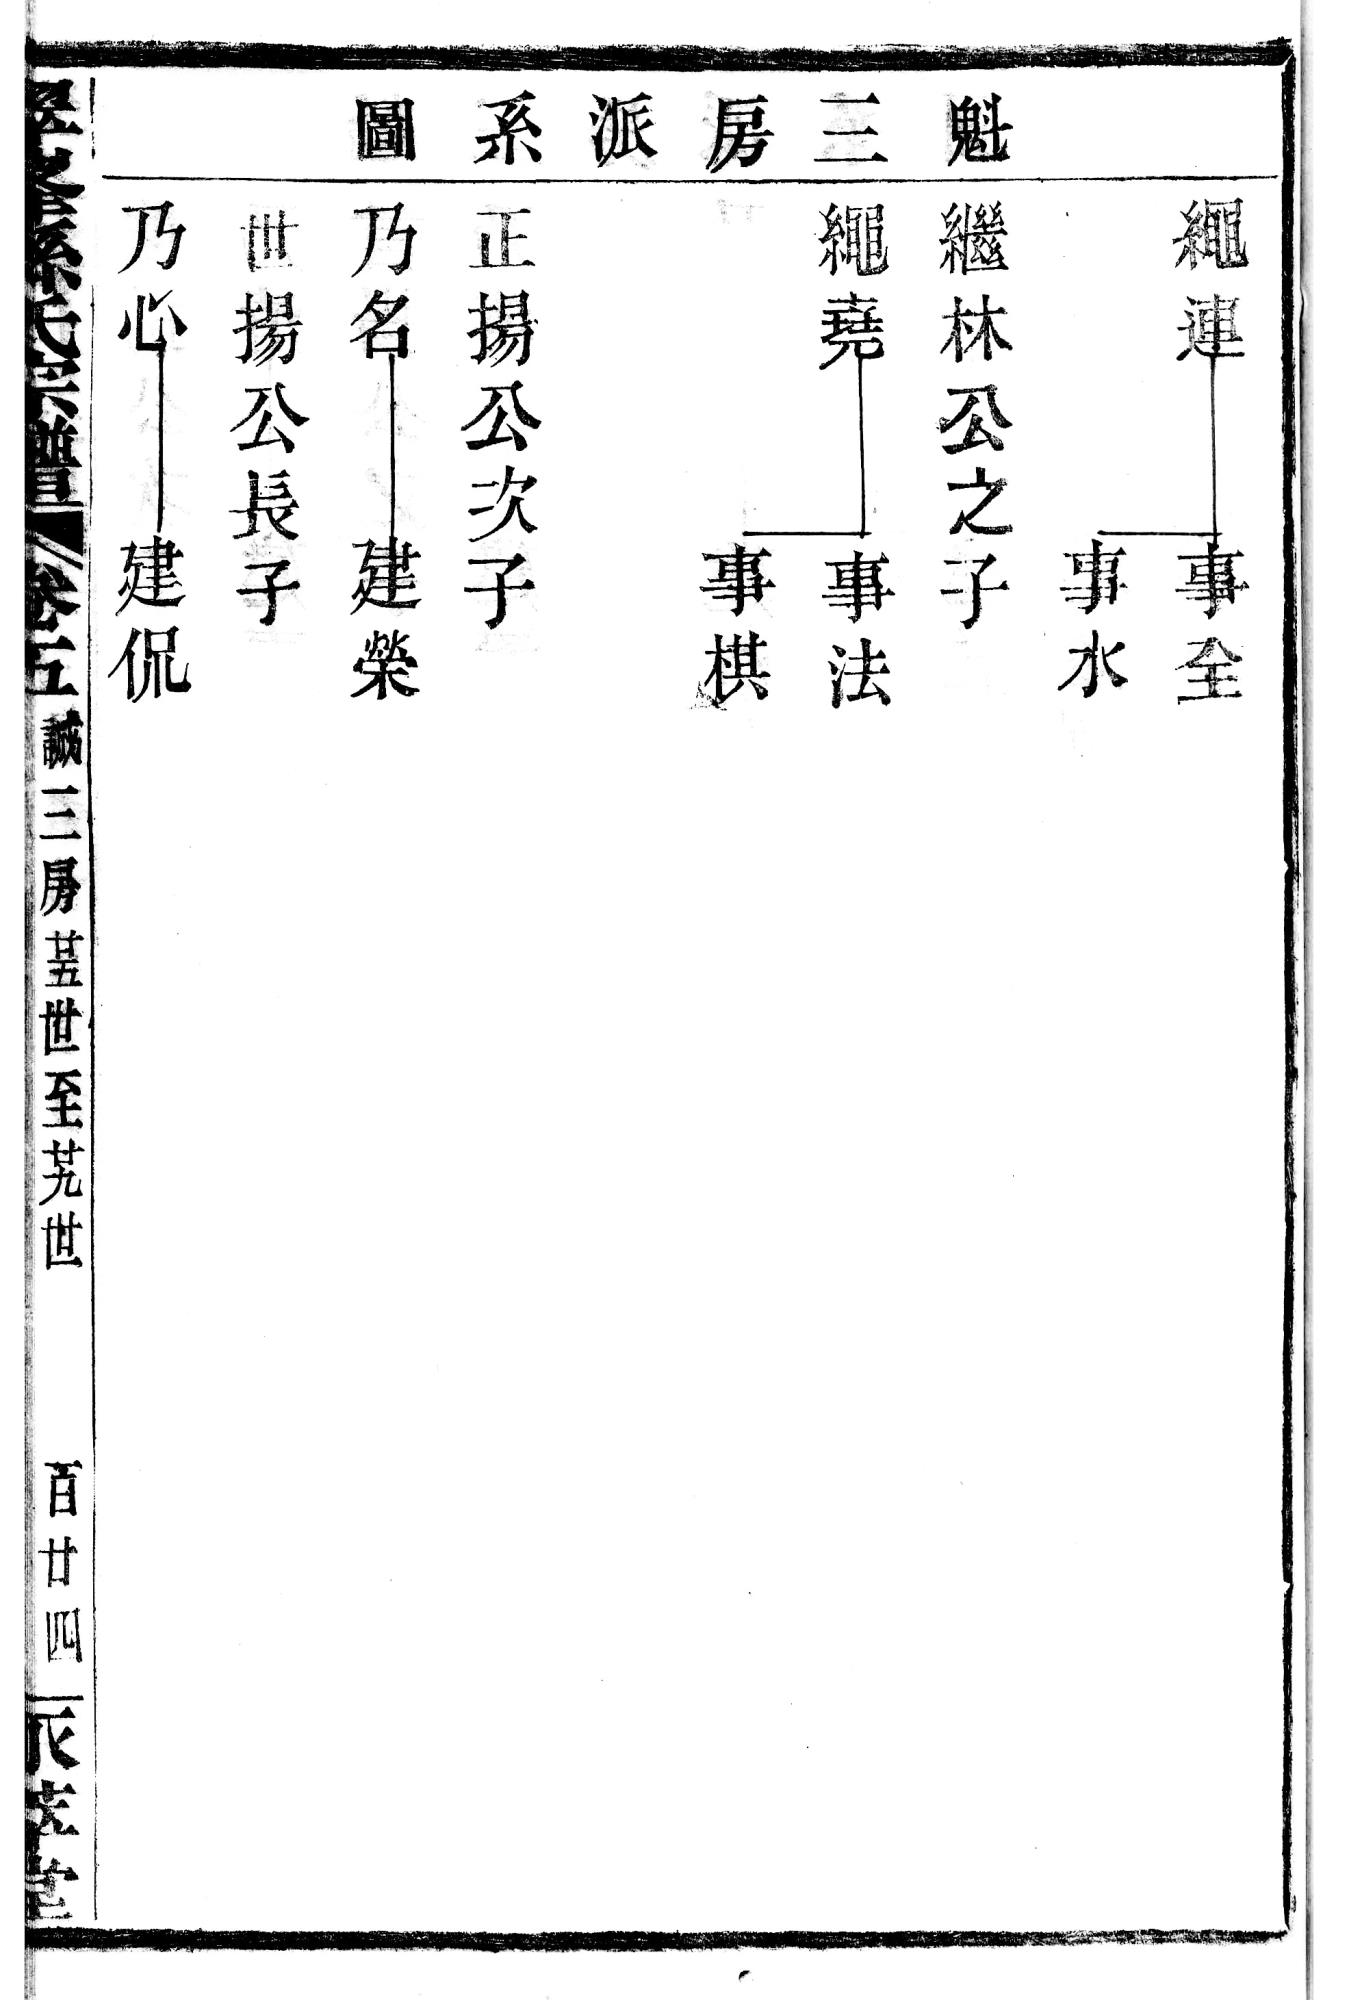 魁三房派系圖
繩連
事全
事水
繼林公之子
繩堯
事法
事棋
正揚公次子
乃名
建榮
世揚公長子
乃心
建侃
孫氏宗譜
卷五
誠三房廿五世至廿九世
百廿四